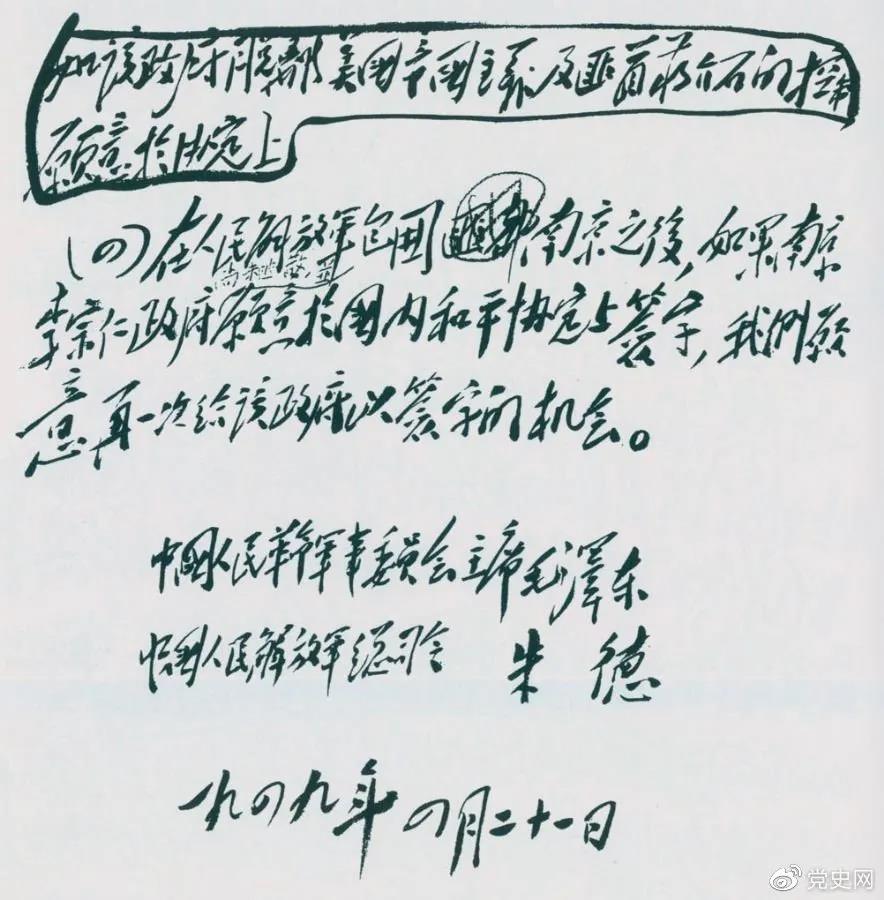 如该政府脱离美国帝国主义及匪首蒋介石的控制
願意於协定上
(四)在人民解放军包围南京之後,如果南京
尚未逃散
李宗仁政府願意於國内和平协定上簽字,我們願
意再一次给该政府以簽字的机会。
中國人民革命军事委员会主席毛澤东
中國人民解放军總司令 朱德
一九四九年 四月二十一日
党史网